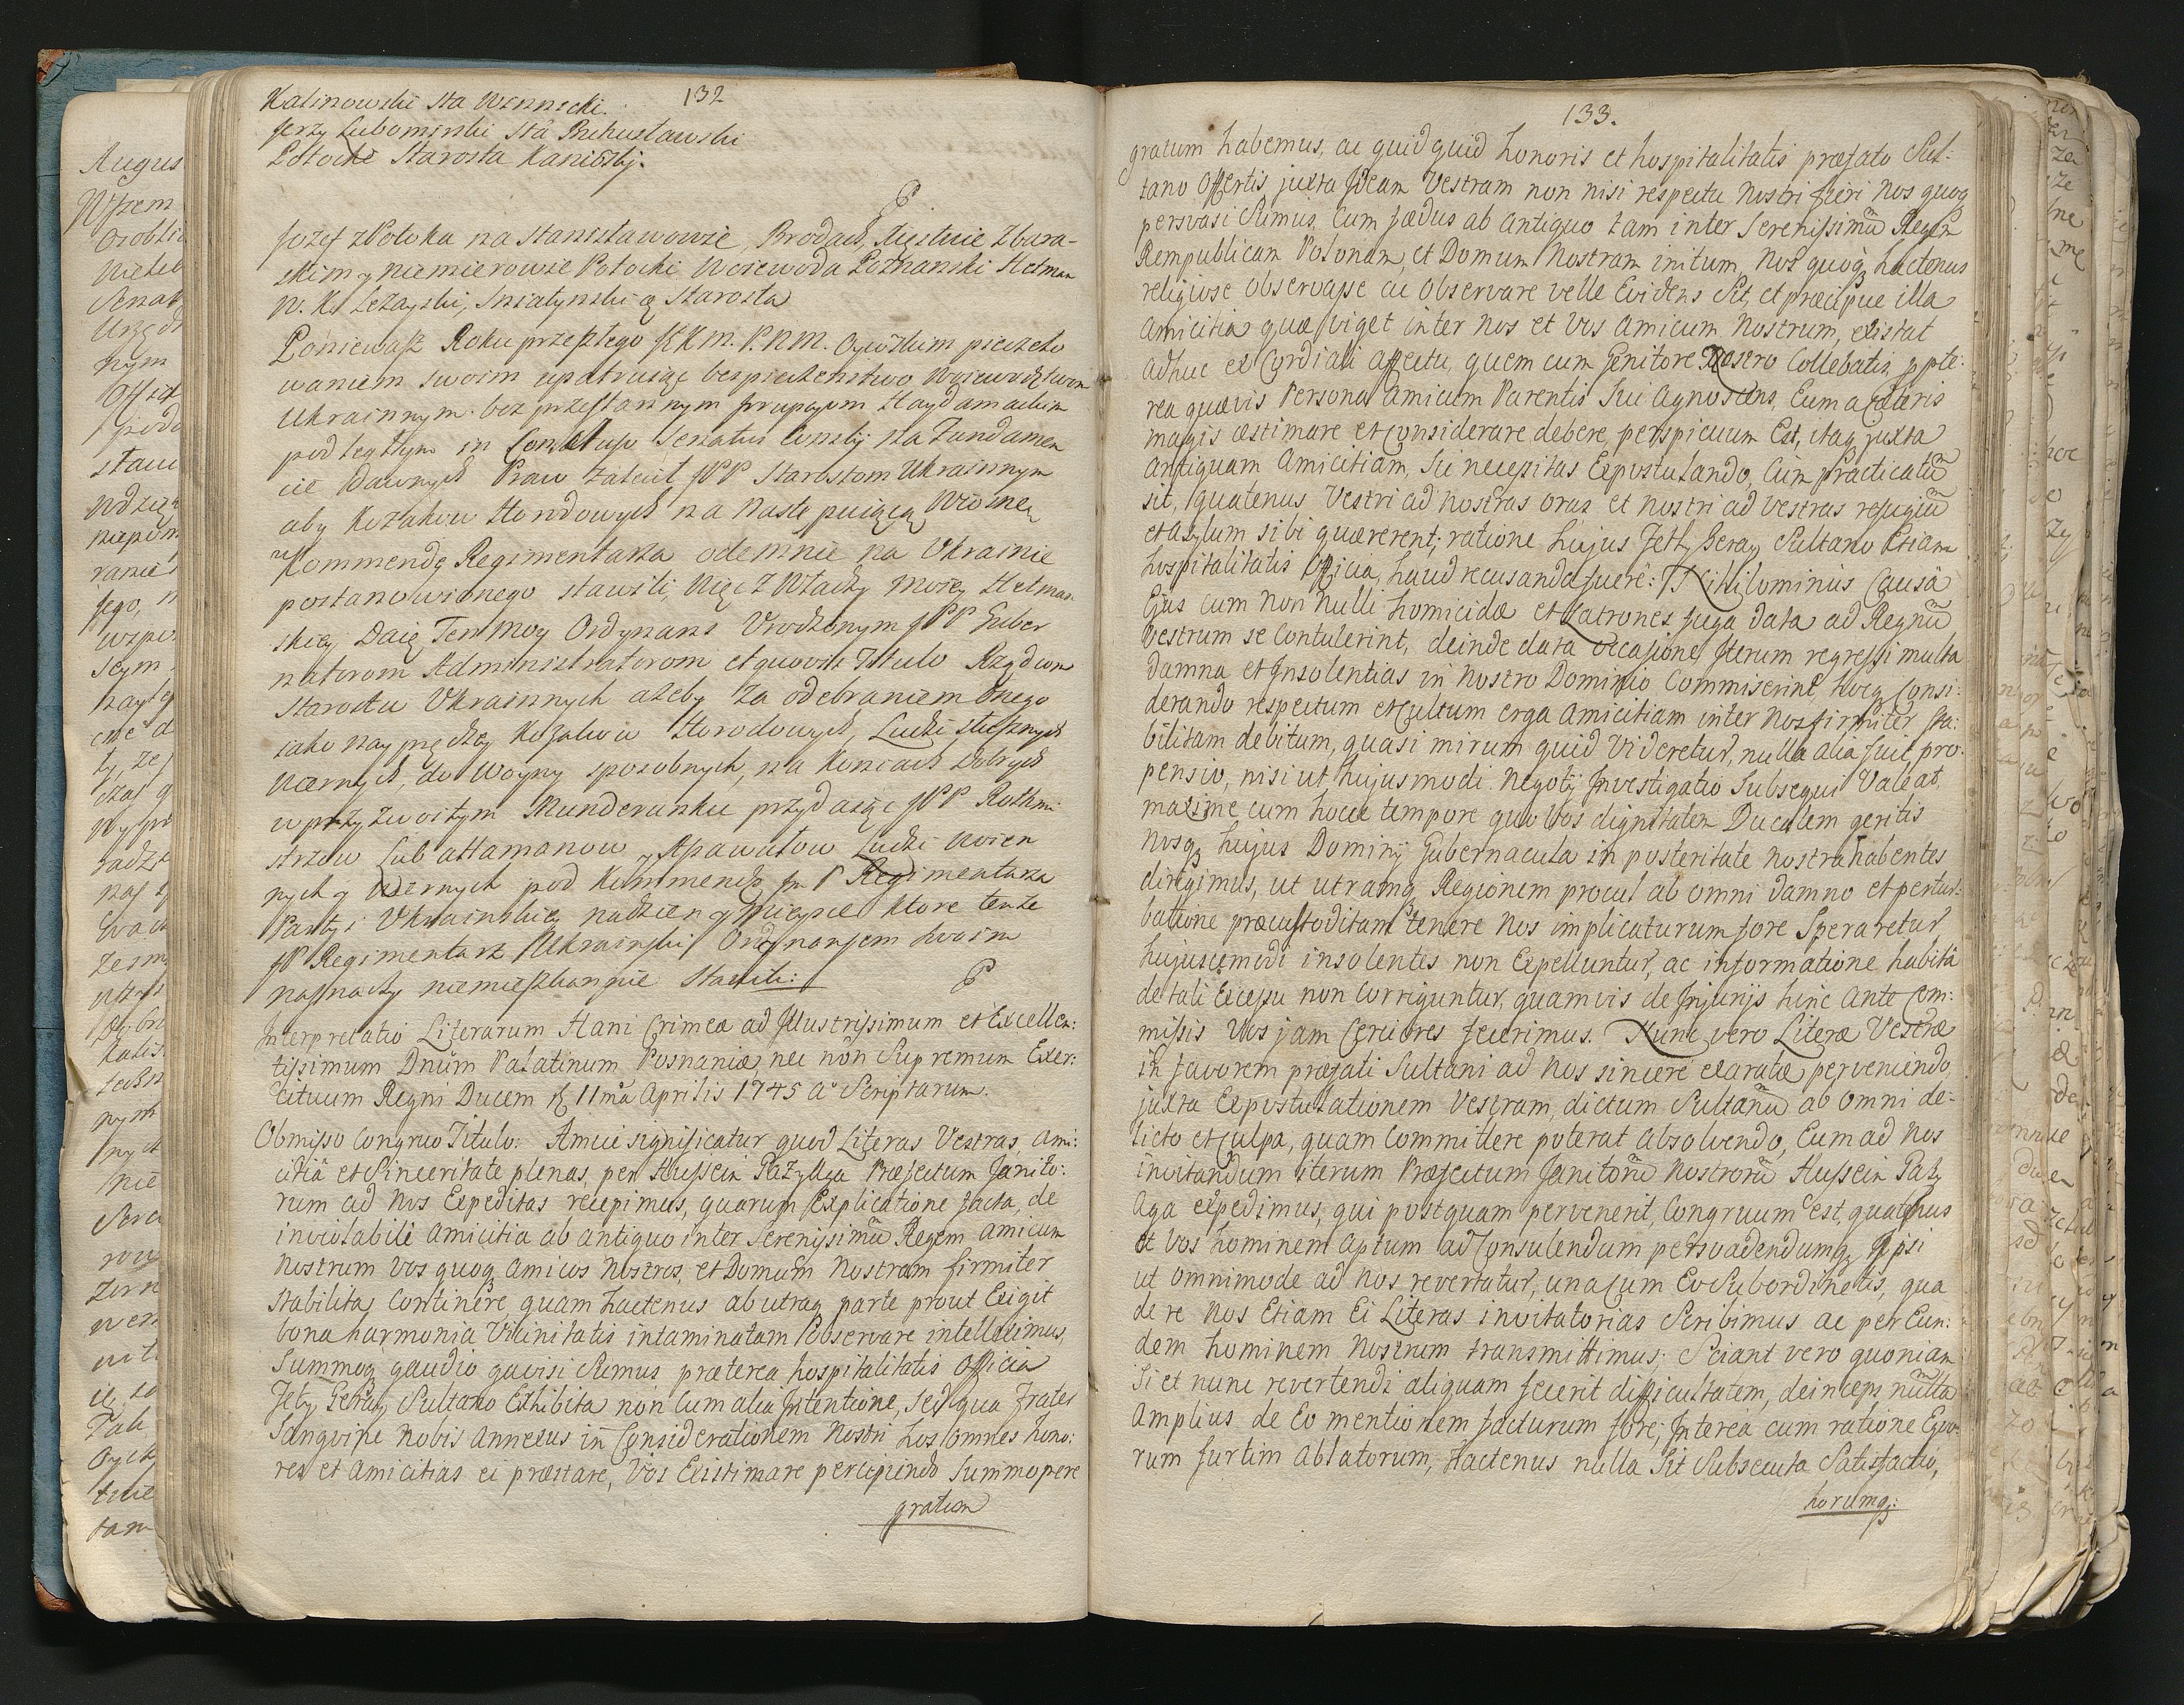 132
Kalinowski Sta Winnicki.
Jerzy Lubomirski Stā Bohusławski
Potocki Starosta Kaniowskj.
Jozef z Potoka na Stanisławowie, Brodach, Xięstwie Zbara-
skim y Niemierowie Potocki Woiewoda Poznanski Hetman
W. K. Leżayski, Sniatynski ą Starosta
Poniewasz Roku przeszłego JKM. P.N.M. Oycowskim pieczeto
waniem swoim upatruiąc bespieczenstwo Woiewodztwom
Ukrainnym bez przestannym Haydamackim
podległym in Senatus Consilij na Fundamen
cie Dawnych Praw zalecił JPP Starostom Ukrainnym
aby Kozakow Horodowych na Nastempuiącą Wiosnę
Kommendę Regimentarza odemnie na Ukrainie
postanowionego stawili, Więc z Władzy Moiey Hetman
skiey Daię Ten Moy Ordynans Urodzonym JPP Guber
natorom Administratorom et quovis Titulo Rządcom
Starostw Ukrainnych ażeby za odebraniem Onego
iako nayprędzey Kozakow Horodowych, Ludzi słusznych
Wiernych, do Woyny sposobnych, na Koniach Dobrych
w przyzwoitym Munderunku przydaiąc JPP Rothmi-
strzow Lub attamanow y Assawułow Ludzi woien
nych y Wiernych pod Kommendę Jm P Regimentarza
Partyi Ukrainskiey na dzien y Mieysce ktore tenże
JP Regimentarz Ukrainski Ordynansem swoim
naznaczy niemieszkannie Stawili:
Interpretatio Literarum Hani Crimeæ ad Illustrissimum et Excellen:
tissimum Dnūm Palatinum Posnaniæ, nec nōn Supremum Exer:
cituum Regni Ducem 11mā Aprilis 1745 Aō Scriptarum.
Obmisso Congruo Titulo: Amice significatur quod Literas Vestras, ami:
citiā et Sinceritate plenas, per Hussein Pazy Aga Præfectum Janito:
rum ad Nos Expeditas recepimus, quarum Explicatione facta, de
inviolabili amicitia ab antiquo inter Serenissimū Regem Amicum
Nostrum Vos quoq amicos Nostros, et Domum Nostram firmiter
stabilita, Continere quam hactenus ab utraq parte prout Exigit
bona harmonia Vicinitatis intaminatam observare intelleximus,
Summoq gaudio gavisi Sumus præterea hospitalitatis Officia
Jety Geray Sultano Exhibita non Cum alia Intentione, sed qua frater
Sangvine Nobis Annexus in Considerationem Nostri hos omnes hono:
res et Amicitias ei præstare, Vos Existimare percipiendo Summopere
gratum
133.
gratum habemus, ac quidquid honoris et hospitalitatis præfato Sul-
tano Offertis, juxta Ideam Vestram non nisi respectu Nostri fieri Nos quoq
persvasi Sumus, Cum fœdus ab antiquo tam inter Serenissimū Regem
Rempublicam Polonam, et Domum Nostram initum, Nos quoq hactenus
religiose Observasse ac Observare velle Evidens Sit, et præcipue illa
Amicitia quæ viget inter Nos et Vos Amicum Nostrum, existat
adhuc ex Cordiali affectu, quem cum Genitore Nostro Collebatis, ppte:
rea quævis Persona amicum Parentis Sui Agnoscens, Eum a Cæteris
magis æstimare et Considerare debere, perspicuum Est, itaq juxta
antiquam Amicitiam, Sic necessitas Expostulando, Cum practicatū
sit, quatenus Vestri ad Nostras oras et Nostri ad Vestras refugiū
et asylum sibi quærerent; ratione hujus Jetty Geray Sultano Etiam
hospitalitatis Officia, haud recusanda fuere: Nihilominus Causā
Ejus cum Non Nulli homicidæ et Latrones fuga data ad Regnū
Vestrum se Contulerint, deinde data occasione, Iterum regressi multa
damna et Insolentias in Nostro Dominio Commiserint, hocq Consi:
derando respectum et Cultum erga Amicitiam inter Nos firmiter sta:
bilitam debitum, quasi mirum quid Videretur, nulla alia fuit pro:
pensio, nisi ut hujusmodi Negotij Investigatio Subsequi Valeat,
maxime cum hocce tempore quo Vos dignitatem Ducalem geritis
Nosq hujus Dominij Gubernacula in posteritate nostra habentes
dirigimus, ut utramq Regionem procul ab omni damno et pertur:
batione præcustoditam tenere Nos implicaturum fore Speraretur,
hujuscemodi insolentes non Expelluntur, ac informatione habitā
de tali Excessu non Corriguntur, quamvis de Injurijs hinc Ante Com:
missis Vos jam Certiores fecerimus. Nunc vero Literæ Vestræ
in favorem præfati Sultani ad Nos sincere exaratæ perveniendo,
juxta Expostulationem Vestram, dictum Sultanū ab Omni de-
licto et Culpa, quam Committere poterat Absolvendo, Eum ad Nos
invitandum iterum Præfectum Janitorū Nostrorū Hussein Pazy
Aga expedimus, qui postquam pervenerit, Congruum est, quatenus
et Vos hominem Aptum ad Consulendum persvadendumq Ipsi
ut omnimode ad Nos revertatur, una Cum Eo Subordinetis, qua
de re Nos Etiam Ei Literas invitatorias Scribimus ac per Eun:
dem hominem Nostrum transmittimus; Sciant vero quoniam
Si et nunc revertendi aliquam fecerit difficultatem, deinceps nūlla
Amplius de Eo mentionem facturum fore; Interea cum ratione Equo:
rum furtim Ablatorum, Hactenus nulla Sit Subsecuta Satisfactio,
horumq: